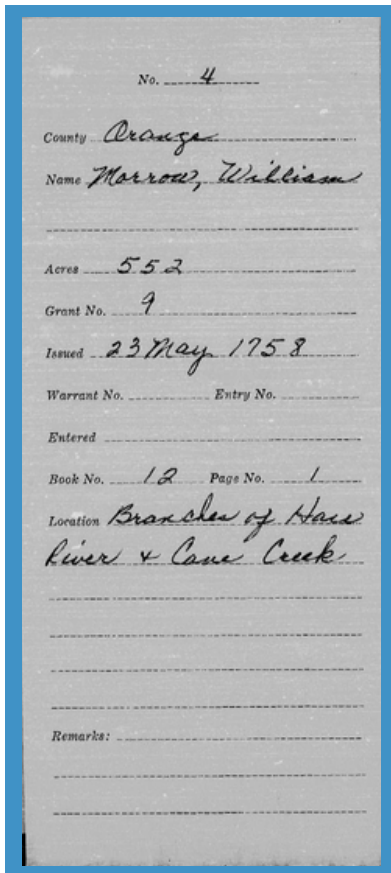 No. 4
County Orange
Name Morrow, William
Acres 552
Grant No. 9
Issued 23 May 1758
Warrant No. Entry No.
Entered
Book No. 12 Page No. 1
Location Branches of Haw
River & Cane Creek
Remarks: